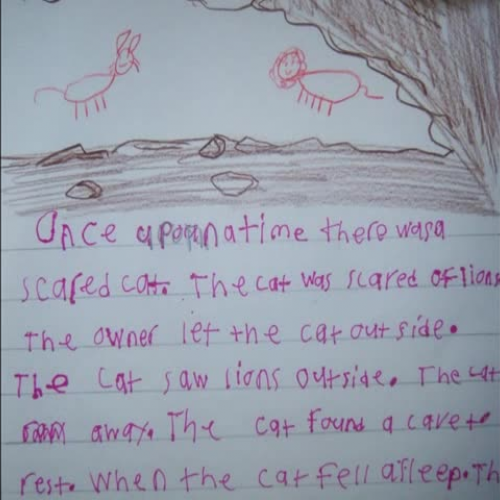 Once upon a time there was a
scared cat. The cat was scared of lions
The owner let the cat out side.
The cat saw lions outside. The cat
ran away. The cat found a cave to
rest. When the cat fell alleep. Th